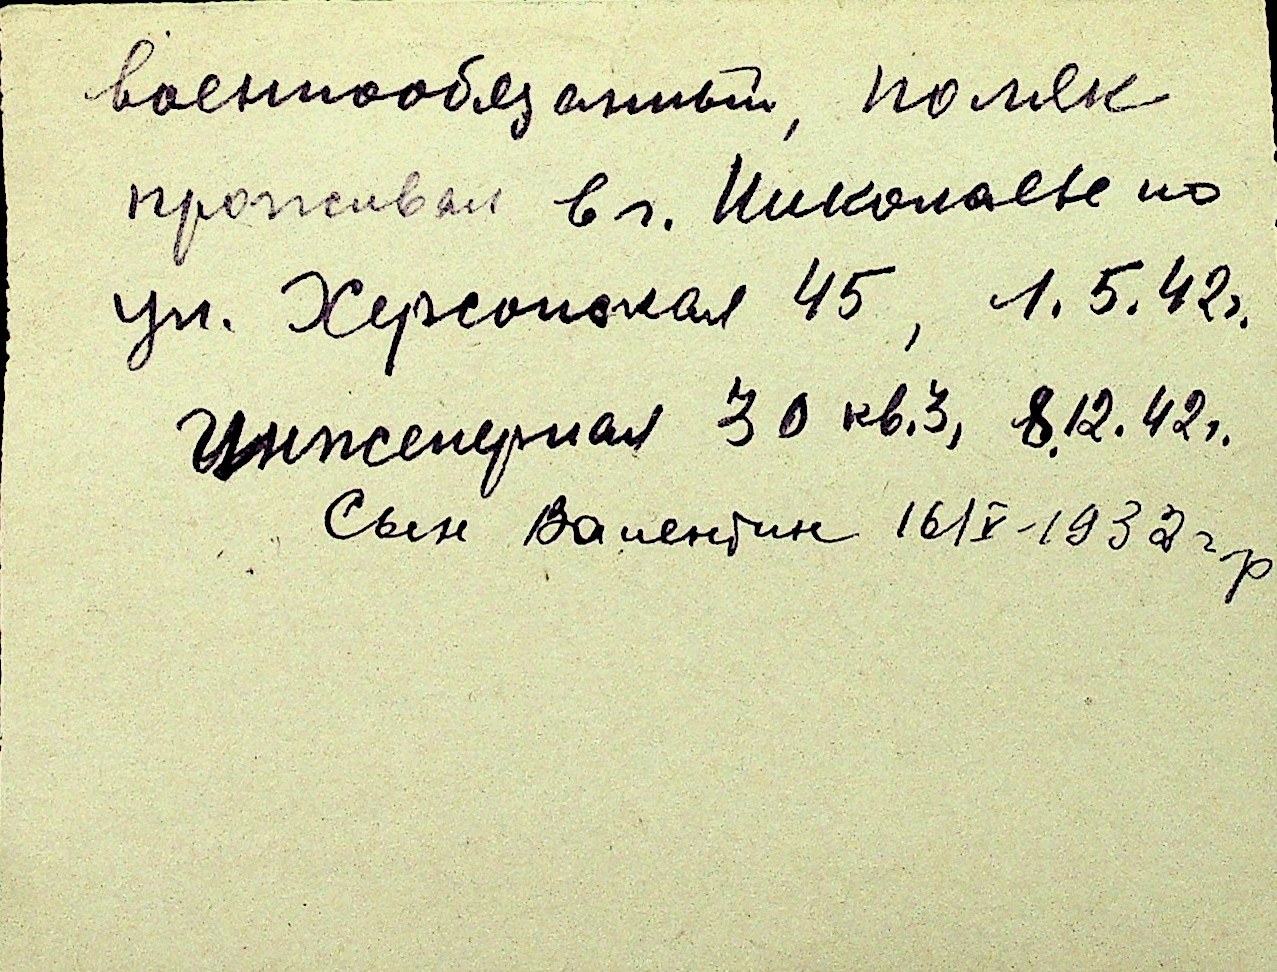 военнообязанный, поляк
проживал в г. Николаеве по
ул. Херсонская 45, 1.5.42г.
Инженерная 30 кв.3, 8.12.42г.
Сын Валентин 16/X-1932 г р